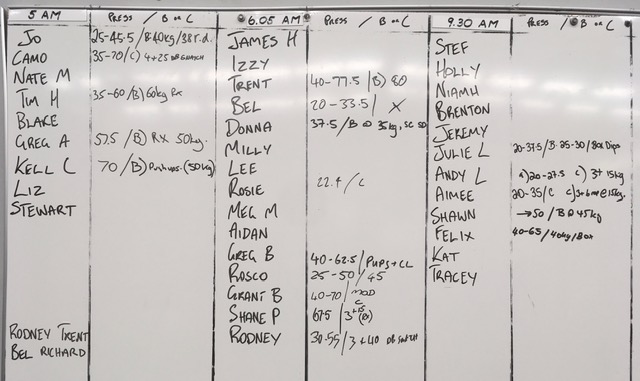 5 AM PRESS / B or C
Jo 25-45.5 / B 40kg / 38 r.d.
Camo 35-70 / C) 4+25 DB SNATCH
Nate M
Tim H 35-60 / B) 60kg Rx
Blake
Greg A 57.5 / B) RX 50kg.
Kell C 70 / B) Push ups - (50kg)
Liz
Stewart
Rodney Trent
Bel Richard
6.05 AM PRESS / B or C
James H
Izzy
Trent 40-77.5 / B) 80
Bel 20-33.5 / X
Donna 37.5 / B @ 35kg, SC SD
Milly
Lee
Rosie 22.+ / C
Meg M
Aidan
Greg B 40-62.5 / PUPS + CL
Rosco 25-50 / 45
Grant B 40-70 / MOD C
Shane P 67.5 / 3+15 (Bx)
Rodney 30.55 / 3+40 DB
9.30 AM PRESS / B or C
Stef
Holly
Niamh
Brenton
Jeremy
Julie L 20-37.5 / B. 25-30 / Box Dips
Andy L a) 20-27.5 c) 3+ 15kg
Aimee 20-35 / C c) 3+6 @ 15kg.
Shawn → 50 / B @ 45kg
Felix 40-65 / 40kg / Box
Kat
Tracey